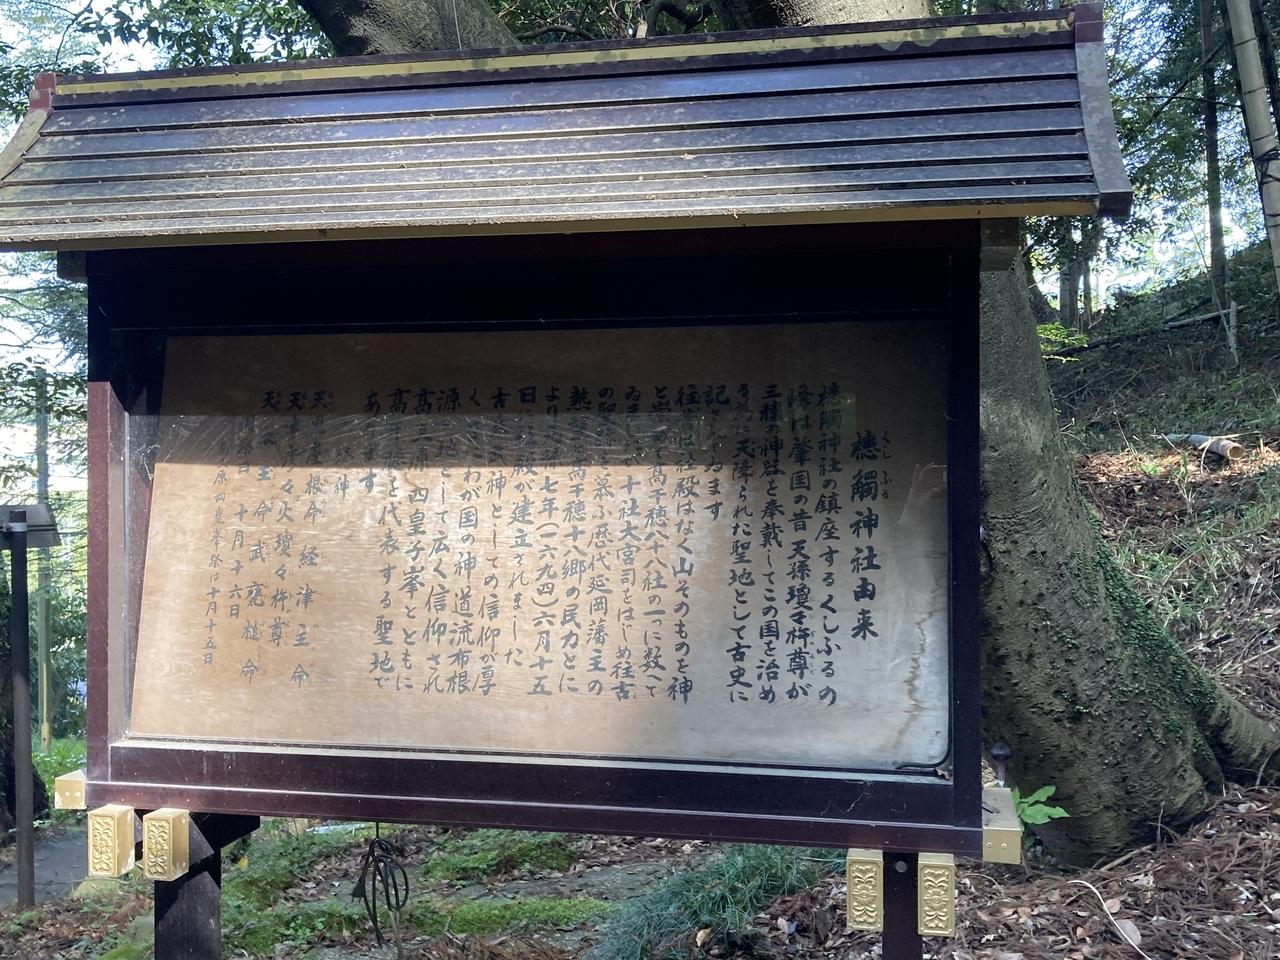 くし ふる
穂觸神社由来
穂觸神社の鎮座するくしふるの
峰は肇国の昔天孫瓊々杵尊が
三種の神器を奉戴してこの国を治め
る為に天降られた聖地として古史に
記されゐます
往昔は社殿はなく山そのものを神
と崇めて高千穂八十八社の一つに数へて
ゐましたが十社大宮司をはじめ往古
の聖跡を慕ふ歴代延岡藩主の
熱意と高千穂十八郷の民力とに
より元禄七年(一六九四)六月十五
日に社殿が建立されました
古来 武神としての信仰が厚
く わが国の神道流布根
源の地として広く信仰され
高天原 四皇子峯とともに
高千穂を代表する聖地で
あります
神
天児屋根命 経津主命
天津彦々火瓊々杵尊
天太玉命 武甕槌命
例祭日 十月十六日
原四皇峯祭は十月十五日